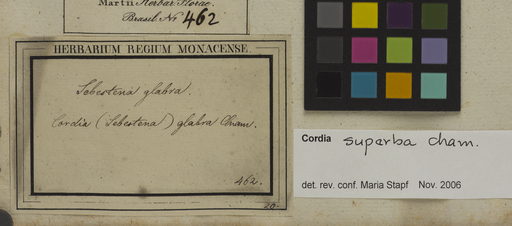 Martii Herbar. Florae.
Brasil. No 462
HERBARIUM REGIUM MONACENSE.
Sebestena glabra.
Cordia (Sebestena) glabra Cham.
462.
20.
Cordia superba Cham.
det. rev. conf. Maria Stapf Nov. 2006